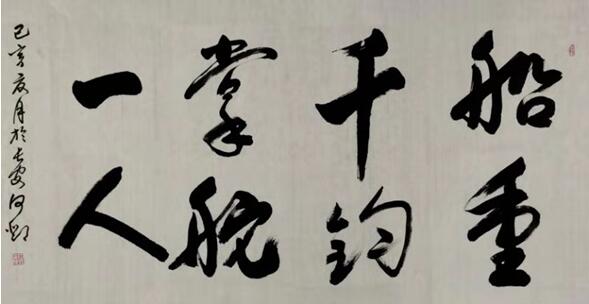 船重
千钧
掌舵
一人
己亥夏月於长安何邓